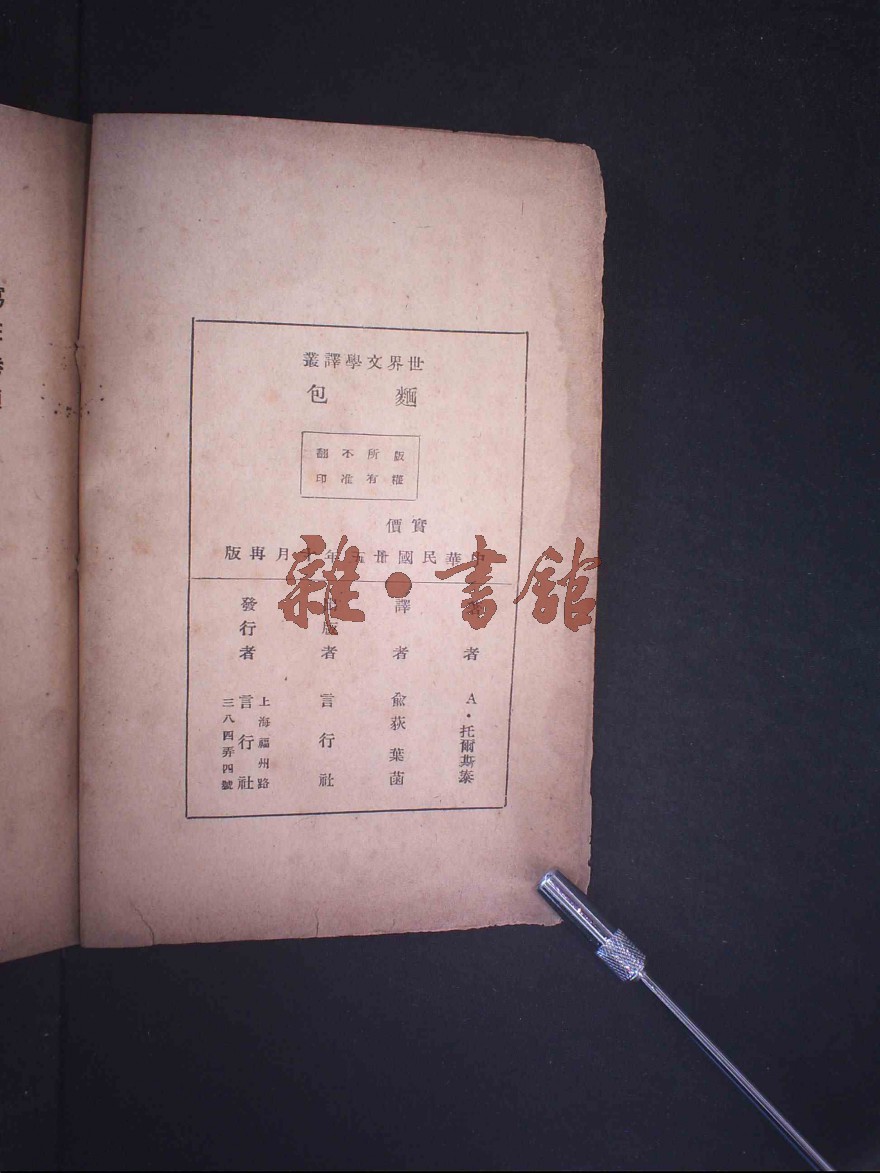 世界文學譯叢
麵包
版權所有
不准翻印
實價
中華民國卅五年十月再版
著者 A·托爾斯泰
譯者 俞荻 葉菡
出版者 言行社
發行者 言行社
上海福州路
三八四弄四號
雜·書館